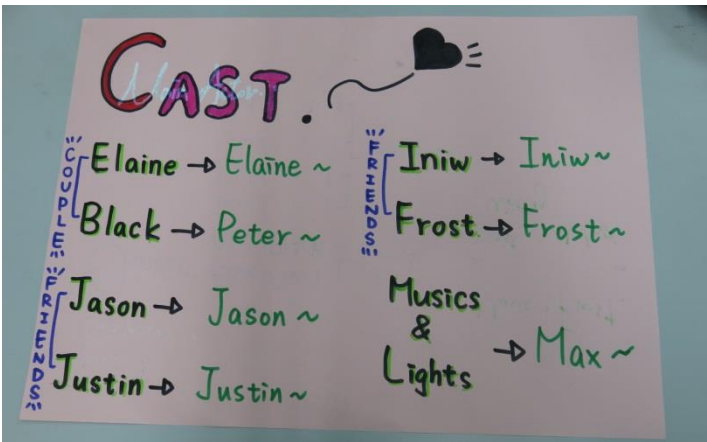 CAST.
COUPLE
Elaine → Elaine ~
Black → Peter ~
FRIENDS
Jason → Jason ~
Justin → Justin ~
FRIENDS
Iniw → Iniw ~
Frost → Frost ~
Musics
&
Lights → Max ~